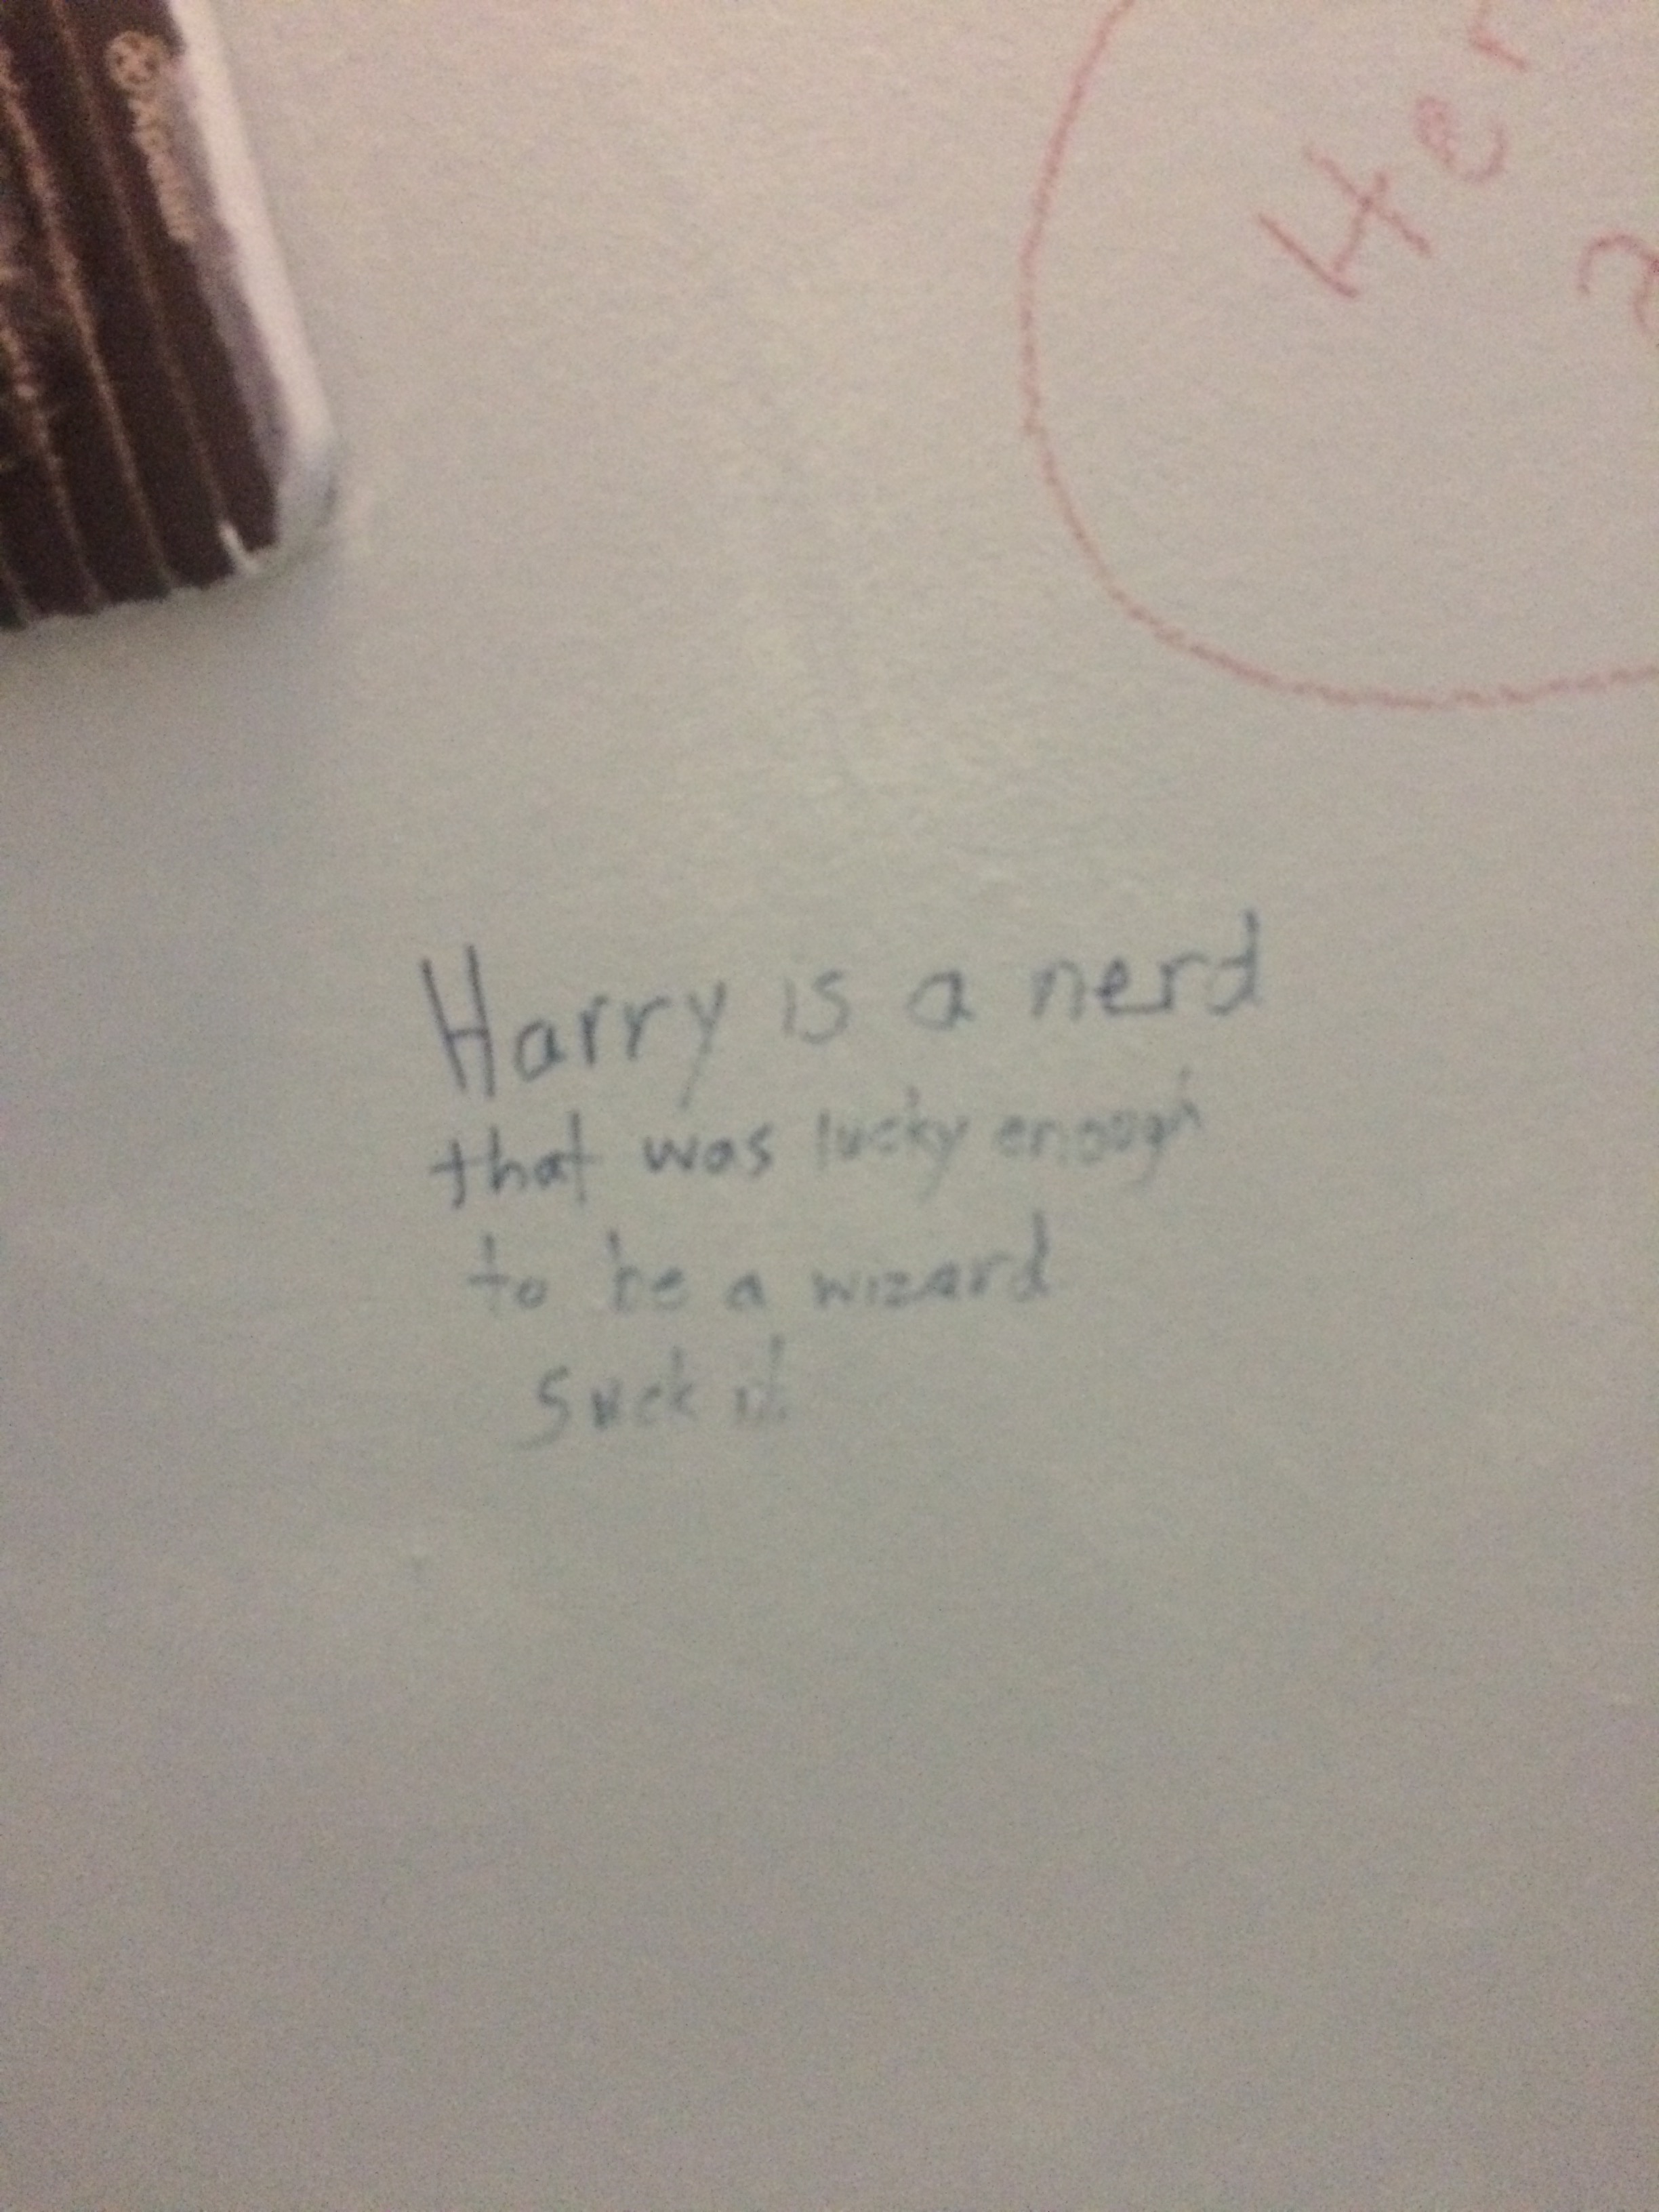 Her
Harry is a nerd
that was lucky enough
to be a wizard
suck it.